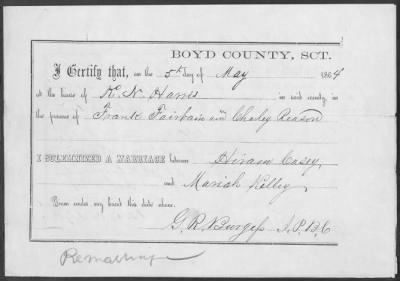 BOYD COUNTY, SCT.
I Certify that, on the 5th day of May 1864
at the house of K. N. Harris in said county, in
the presence of Frank Fairbain and Charley Reason
I SOLEMNIZED A MARRIAGE between Hiram Casey,
and Mariah Kelley,
Given under my hand this date above.
G. R. Burgess J. P. B. C.